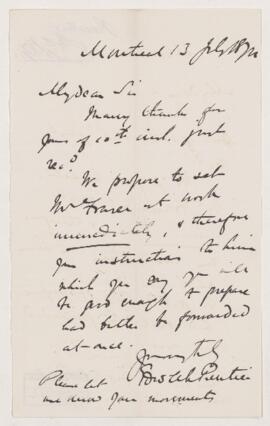 Montreal 13 July 187
My dear Sir
Many thanks for
yours of 10th inst. just
rec.d
We propose to set
Mr Fraser at work
immediately, & therefore
your instructions to him
which you say you will
be good enough to prepare
had better be forwarded
at once.
Yours truly
Edw
Please let
me know your movements